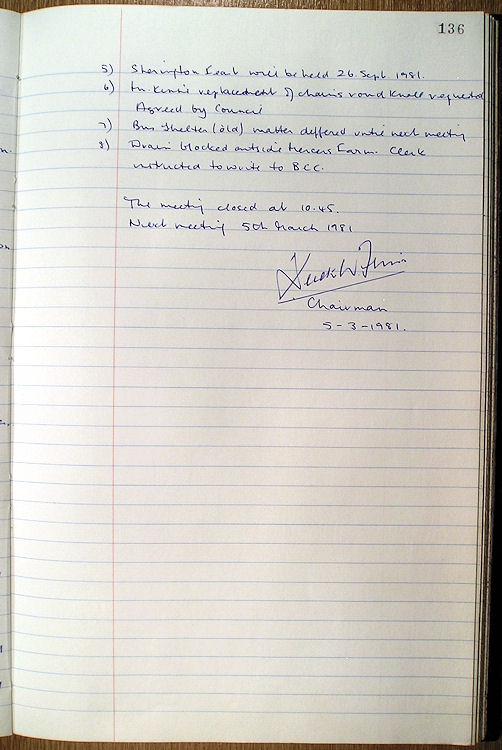 136
5) Sherington Feast will be held 26 Sept. 1981.
6) replacement of chains round Knoll requested
Agreed by Council
7) Bus Shelter (old) matter deffered until next meeting
8) Drain blocked outside Mercers Farm. Clerk
instructed to write to BCC.
The meeting closed at 10.45.
Next meeting 5th March 1981
Chairman
5-3-1981.